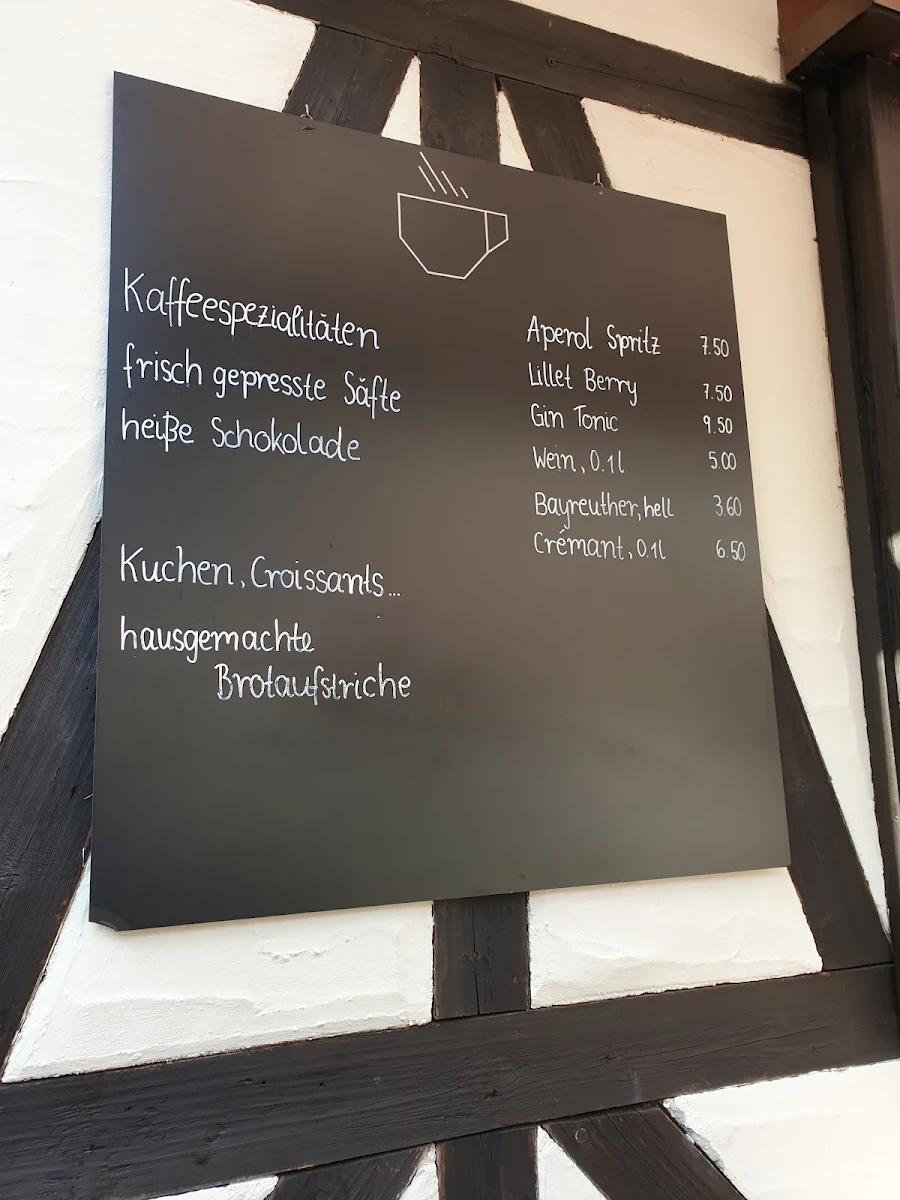 Kaffeespezialitäten
frisch gepresste Säfte
heiße Schokolade
Kuchen, Croissants...
hausgemachte
Brotaufstriche
Aperol Spritz 7.50
Lillet Berry 7.50
Gin Tonic 9.50
Wein, 0.1l 5.00
Bayreuther, hell 3.60
Crémant, 0.1l 6.50